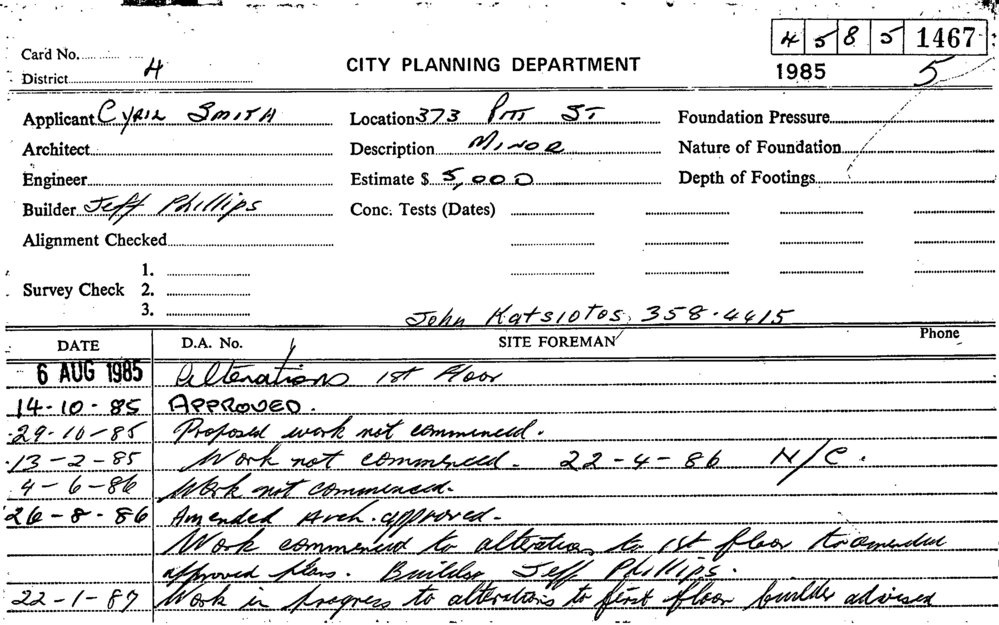 4 5 8 5 1467
Card No.
District 4
CITY PLANNING DEPARTMENT
1985 5
Applicant Cyril Smith Location 373 Pitt St Foundation Pressure
Architect Description Minor Nature of Foundation
Engineer Estimate $ 5,000 Depth of Footings
Builder Jeff Phillips Conc. Tests (Dates)
Alignment Checked
1.
Survey Check 2.
3.
John Katsiotos 358.4415
DATE D.A. No. SITE FOREMAN Phone
6 AUG 1985 Alterations 1st Floor
14-10-85 APPROVED.
29-10-85 Proposed work not commenced.
13-2-85 Work not commenced. 22-4-86 N/C.
4-6-86 Work not commenced.
26-8-86 Amended Arch. approved.
Work commenced to alterations to 1st floor to amended
approved plans. Builder Jeff Phillips.
22-1-87 Work in progress to alterations to first floor builder advised